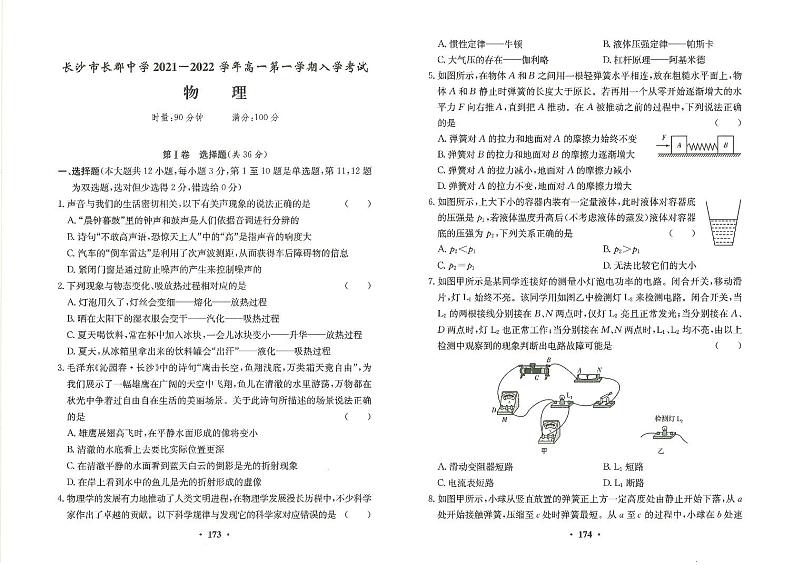 长沙市长郡中学2021—2022学年高一第一学期入学考试
物 理
时量:90分钟 满分:100分
第Ⅰ卷 选择题(共36分)
一、选择题(本大题共12小题,每小题3分,第1至10题是单选题,第11,12题
为双选题,选对但少选得2分,错选给0分)
1. 声音与我们的生活密切相关,以下有关声现象的说法正确的是 ( )
A. “晨钟暮鼓”里的钟声和鼓声是人们依据音调进行分辨的
B. 诗句“不敢高声语,恐惊天上人”中的“高”是指声音的响度大
C. 汽车的“倒车雷达”是利用了次声波测距,从而获得车后障碍物的信息
D. 紧闭门窗是通过防止噪声的产生来控制噪声的
2. 下列现象与物态变化、吸放热过程相对应的是 ( )
A. 灯泡用久了,灯丝会变细——熔化——放热过程
B. 晒在太阳下的湿衣服会变干——汽化——吸热过程
C. 夏天喝饮料,常在杯中加入冰块,一会儿冰块变小——升华——放热过程
D. 夏天,从冰箱里拿出来的饮料罐会“出汗”——液化——吸热过程
3. 毛泽东《沁园春·长沙》中的诗句“鹰击长空,鱼翔浅底,万类霜天竞自由”,为
我们展示了一幅雄鹰在广阔的天空中飞翔,鱼儿在清澈的水里游荡,万物都在
秋光中争着过自由自在生活的美丽场景。关于此诗句所描述的场景说法正确
的是 ( )
A. 雄鹰展翅高飞时,在平静水面形成的像将变小
B. 清澈的水底看上去要比实际位置更深
C. 在清澈平静的水面看到蓝天白云的倒影是光的折射现象
D. 在岸上看到水中的鱼儿是光的折射形成的虚像
4. 物理学的发展有力地推动了人类文明进程,在物理学发展漫长历程中,不少科学
家作出了卓越的贡献。以下科学规律与发现它的科学家对应错误的是 ( )
· 173 ·
A. 惯性定律——牛顿 B. 液体压强定律——帕斯卡
C. 大气压的存在——伽利略 D. 杠杆原理——阿基米德
5. 如图所示,在物体A和B之间用一根轻弹簧水平相连,放在粗糙水平面上,物
体A和B静止时弹簧的长度大于原长。若再用一个从零开始逐渐增大的水
平力F向右推A,直到把A推动。在A被推动之前的过程中,下列说法正确
的是 ( )
A. 弹簧对A的拉力和地面对A的摩擦力始终不变
B. 弹簧对B的拉力和地面对B的摩擦力逐渐增大
C. 弹簧对A的拉力减小,地面对A的摩擦力减小
D. 弹簧对A的拉力不变,地面对A的摩擦力增大
F
A
B
6. 如图所示,上大下小的容器内装有一定量液体,此时液体对容器底
的压强是p₁,若液体温度升高后(不考虑液体的蒸发)液体对容器
底的压强为p₂,下列关系正确的是 ( )
A. p₂<p₁ B. p₂>p₁
C. p₂=p₁ D. 无法比较它们的大小
7. 如图甲所示是某同学连接好的测量小灯泡电功率的电路。闭合开关,移动滑
片,灯L₁始终不亮。该同学用如图乙中检测灯L₂来检测电路。闭合开关,当
L₂的两根接线分别接在B、N两点时,仅灯L₂亮且正常发光;当分别接在A、
D两点时,灯L₂也正常工作;当分别接在M、N两点时,L₁、L₂均不亮,由以上
检测中观察到的现象判断出电路故障可能是 ( )
B
C
A
N
D
M
L₁
甲
检测灯L₂
乙
A. 滑动变阻器短路 B. L₁短路
C. 电流表短路 D. L₁断路
8. 如图甲所示,小球从竖直放置的弹簧正上方一定高度处由静止开始下落,从a
处开始接触弹簧,压缩至c处时弹簧最短。从a至c的过程中,小球在b处速
· 174 ·